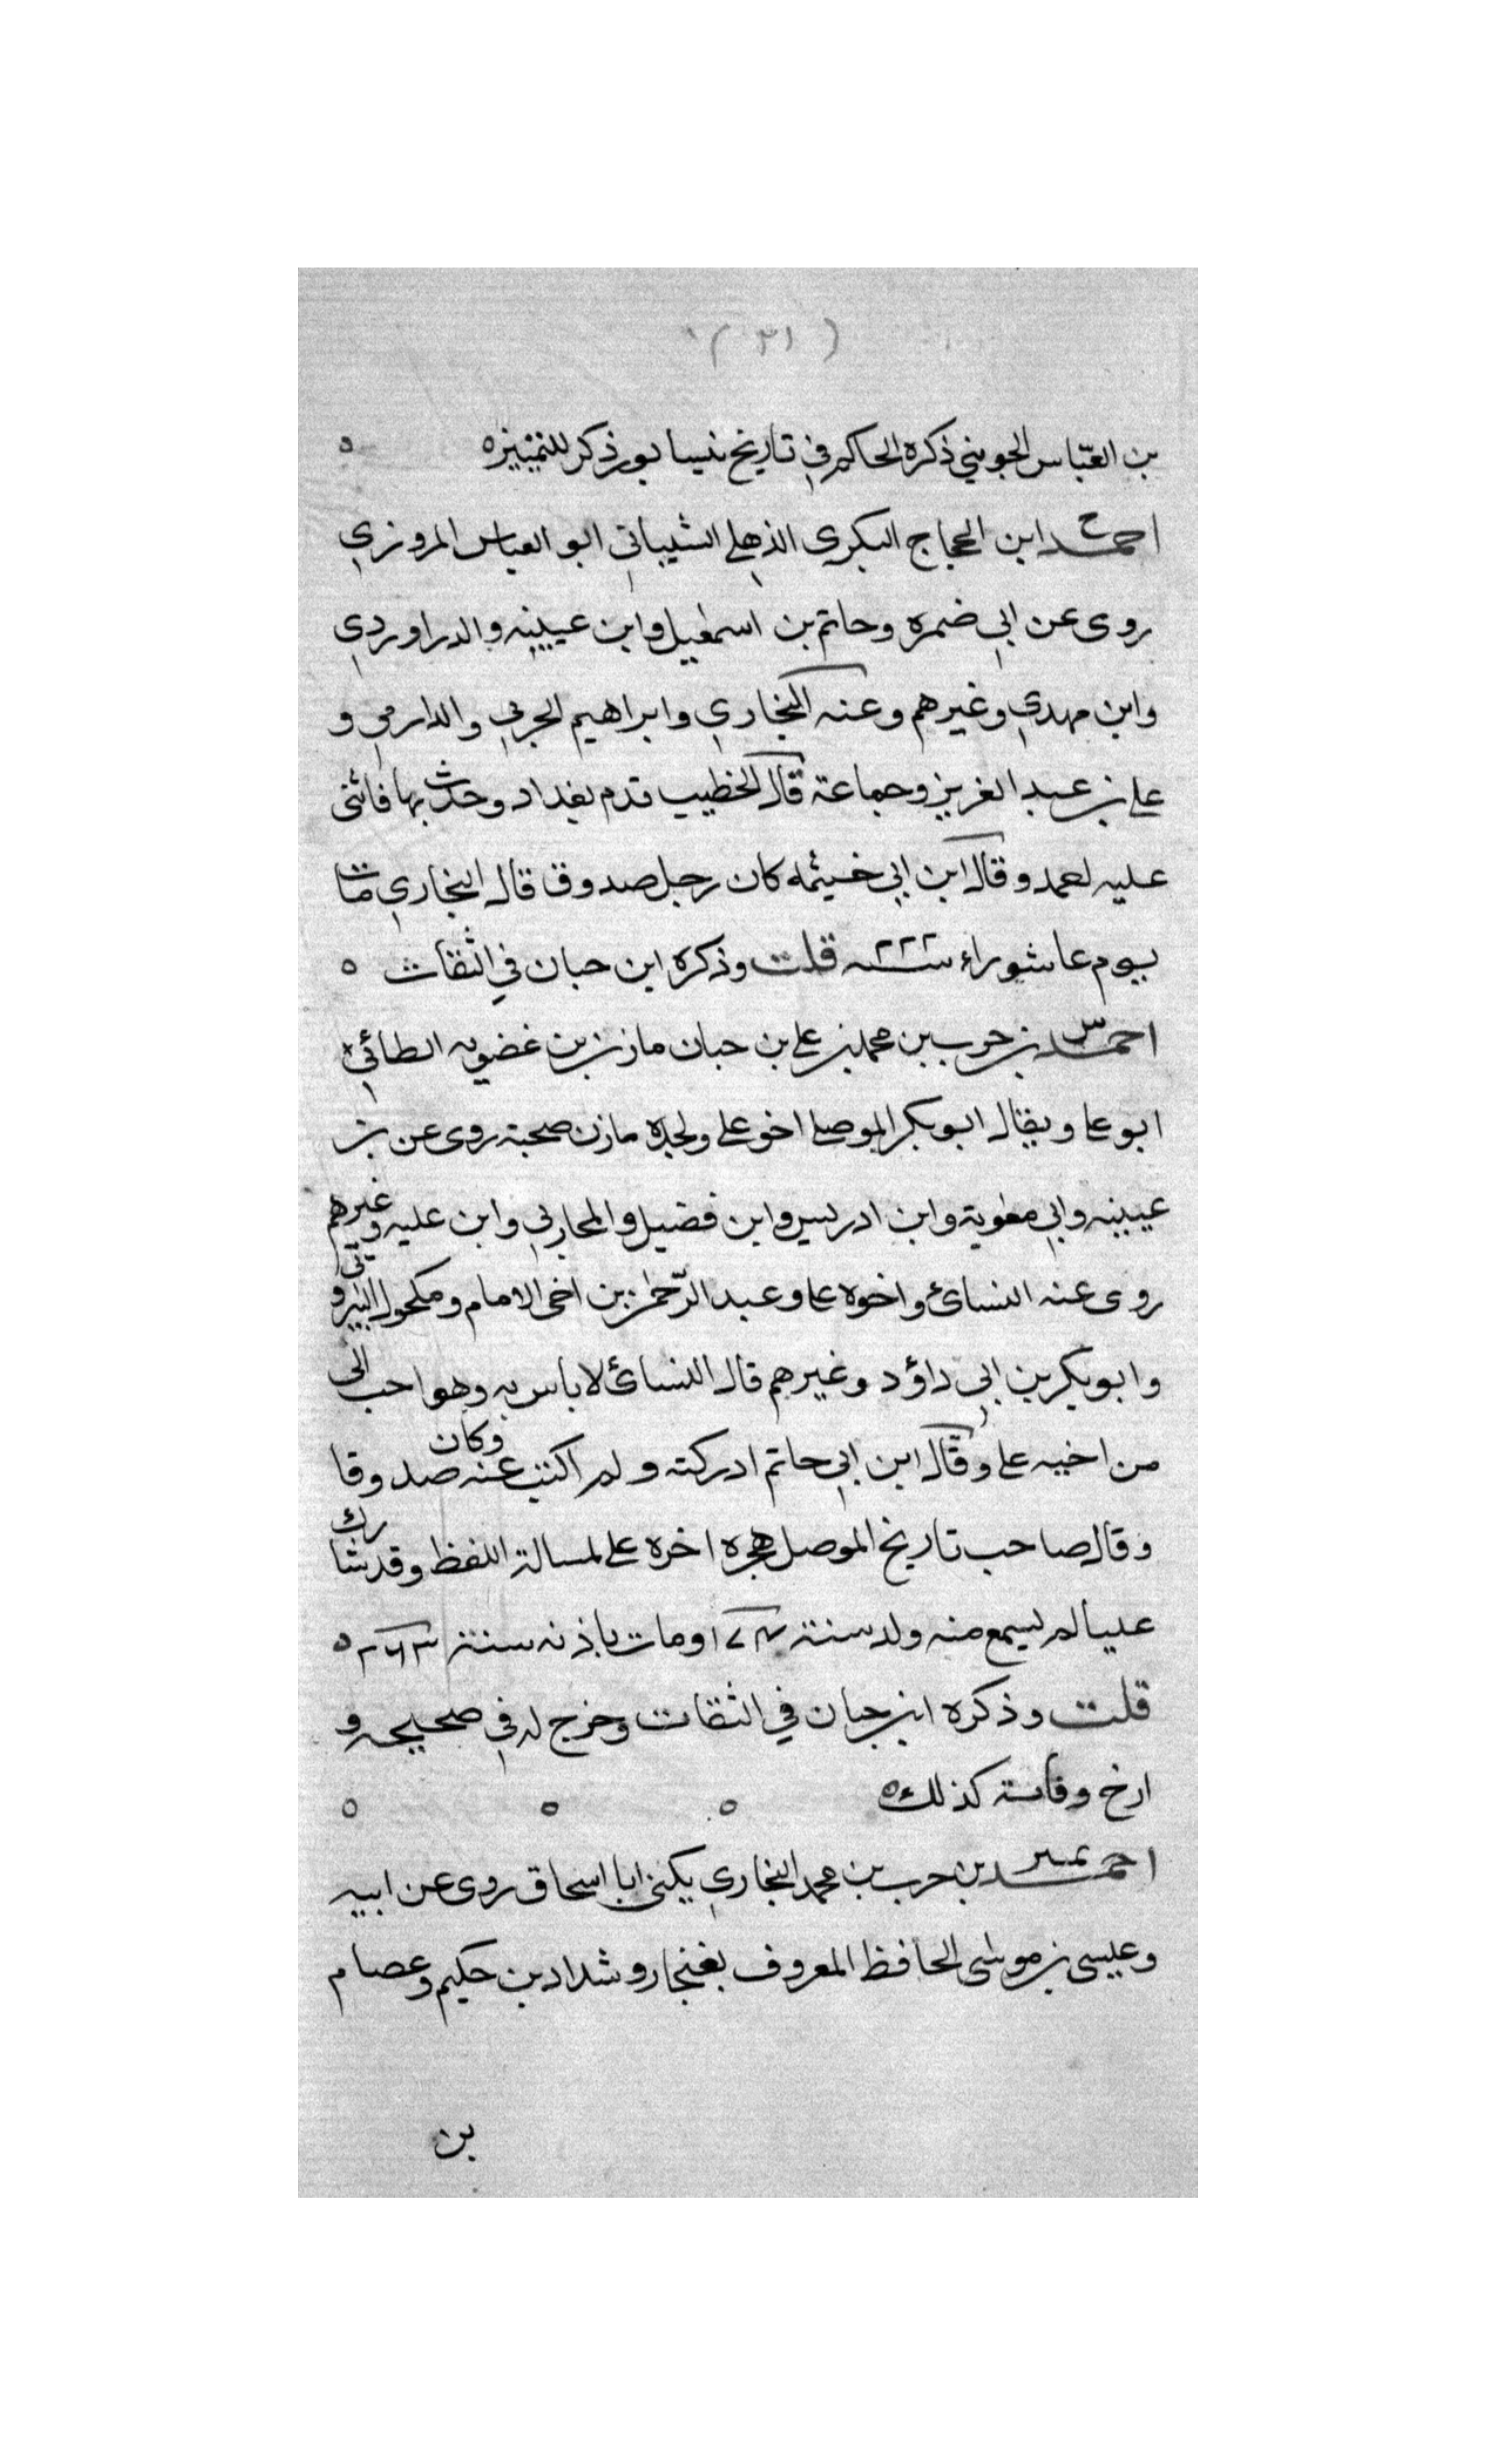 (٣١)
بن العبّاس الجويني ذكره الحاكم في تاريخ نيسابور ذكر للتمييزه ه
احمد ابن الحجاج البكرى الذهلي الشيباني ابو العباس المروزي
روى عن ابي ضمره وحاتم بن اسمعيل وابن عيينه والدراوردي
وابن مهدي وغيرهم وعنه البخاري وابراهيم الحربي والدارمي و
على بن عبد العزيز وجماعة قال الخطيب قدم بغداد وحدث بها فاثنى
عليه احمد وقال ابن ابي خيثمه كان رجل صدوق قال البخاري مات
يوم عاشوراء سنة ٢٢٢ قلت وذكره ابن حبان في الثقات ه
احمد بن حرب بن محمد بن علي بن حبان مازن بن غضوبه الطائي
ابو على ويقال ابو بكر الموصلي اخو علي ولجده مازن صحبة روى عن بن
عيينه وابي معوية وابن ادريس وابن فضيل والمحاربي وابن عليه وغيرهم
روى عنه النسائ واخوه على وعبد الرّحمن بن اخى الامام ومكحول البيروتى
وابو بكر بن ابي داؤد وغيرهم قال النسائ لا باس به وهو احب الى
من اخيه على وقال ابن ابي حاتم ادركته ولم اكتب عنه وكان صدوقا
وقال صاحب تاريخ الموصل هجره اخره علي لمسالة اللفظ وقد شارك
عليا لم يسمع منه ولد سنة ١٧٤ ومات باذنه سنة ٢٦٣ ه
قلت وذكره ابن حبان في الثقات وخرج له في صحيحه و
ارخ وفاته كذلك ه ه ه ه
احمد بن حرب بن محمد البخاري يكنى ابا اسحاق روى عن ابيه
وعيسى بن موسى الحافظ المعروف بغنجار وشداد بن حكيم وعصام
بن